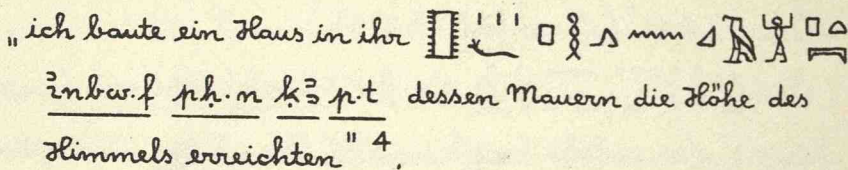 „ich baute ein Haus in ihr 𓊅𓏥𓆑 𓊪𓎛𓂻𓈖 𓈎𓄿𓀠 𓊪𓏏𓇯
ꞽnbw.f pḥ.n ḳꜣ p.t dessen Mauern die Höhe des
Himmels erreichten" 4.